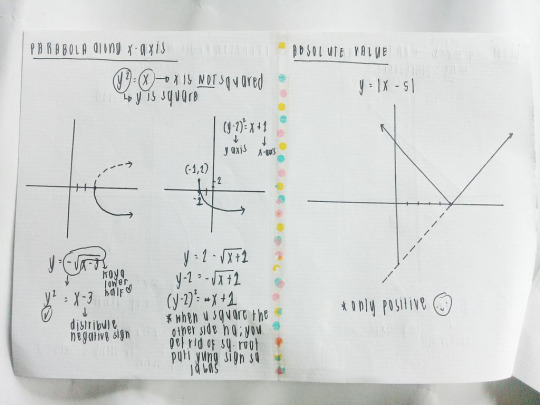 PARABOLA along x-axis
y² = x → x is NOT squared
↳ y is square
(y-2)² = x+1
y axis x-axis
(-1,2)
2
-1
y = -√x-3
kaya
lower
half
y² = x-3
distribute
negative sign
y = 2 - √x+1
y-2 = -√x+1
(y-2)² = x+1
* when u square the
other side na, you
get rid of sq. root
pati yung sign sa
labas
ABSOLUTE VALUE
y = |x - 5|
* only positive